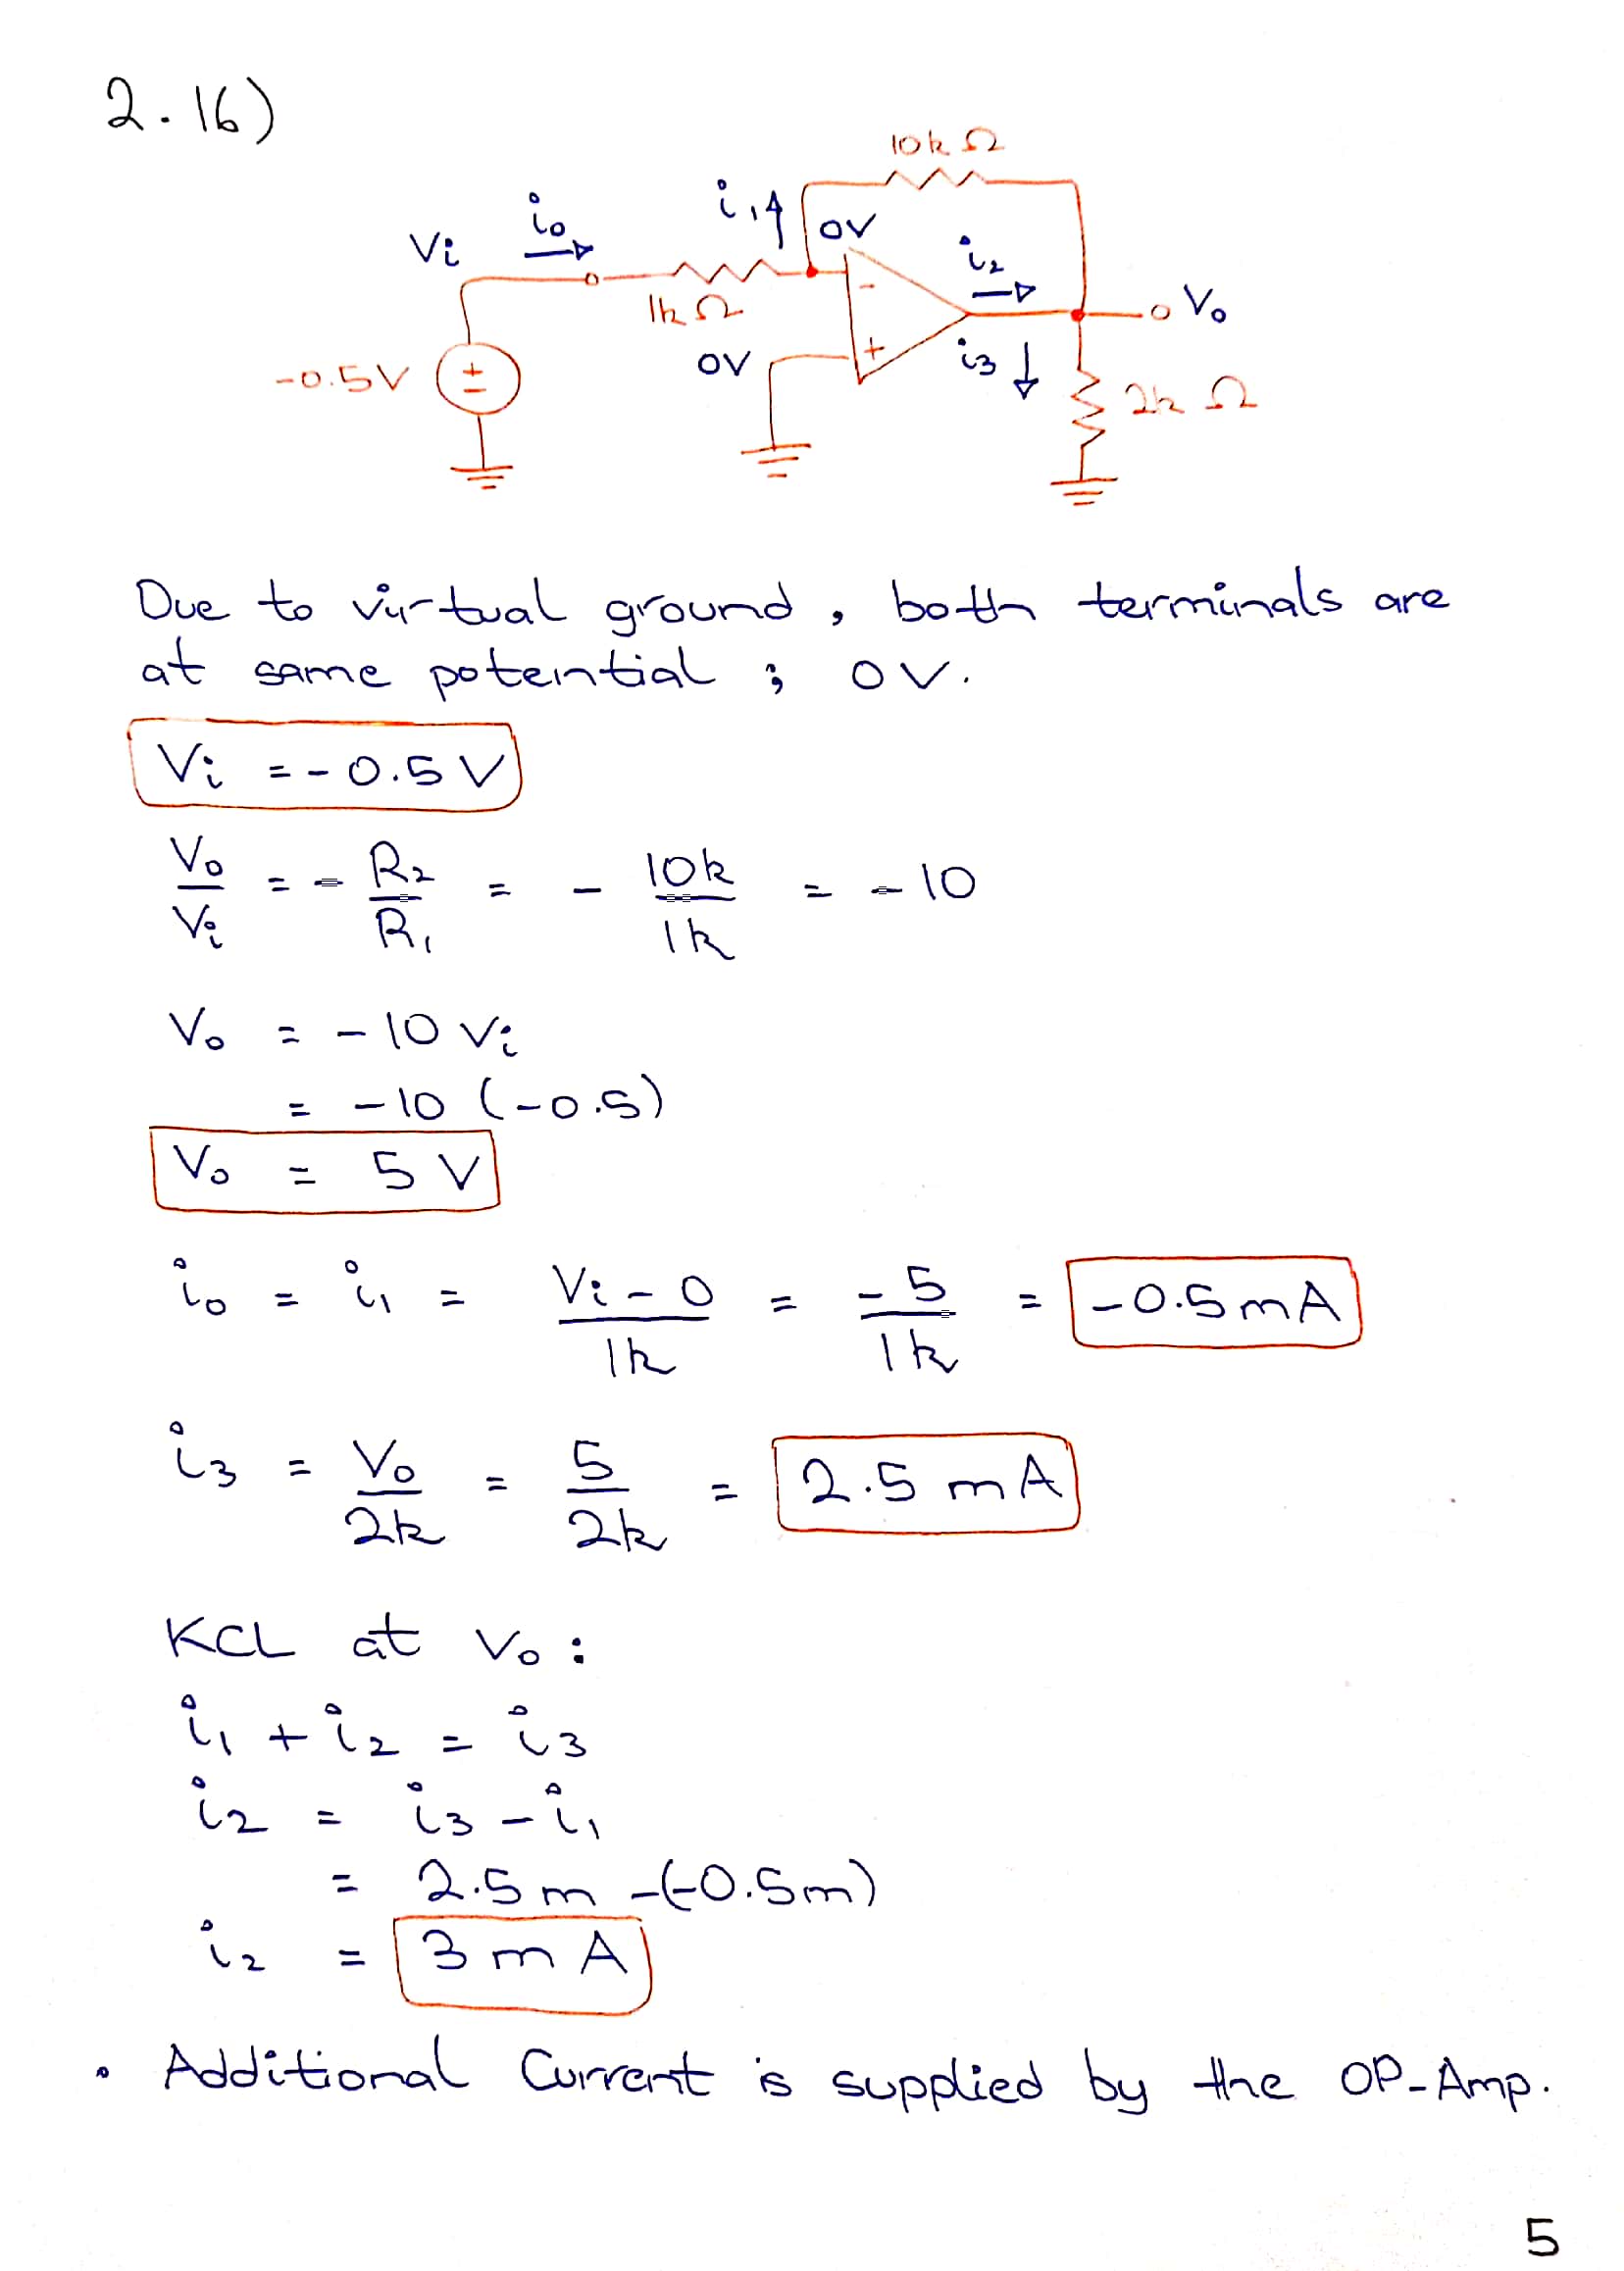 2.16)
10k Ω
Vi i0 i1 0V i2
1k Ω V0
-0.5V + - 0V - + i3 2k Ω
Due to virtual ground, both terminals are
at same potential ; 0V.
Vi = -0.5 V
V0/Vi = - R2/R1 = - 10k/1k = -10
V0 = -10 Vi
= -10 (-0.5)
V0 = 5 V
i0 = i1 = Vi - 0/1k = -5/1k = -0.5 mA
i3 = V0/2k = 5/2k = 2.5 mA
KCL at V0 :
i1 + i2 = i3
i2 = i3 - i1
= 2.5 m -(-0.5m)
i2 = 3 mA
• Additional Current is supplied by the OP-Amp.
5